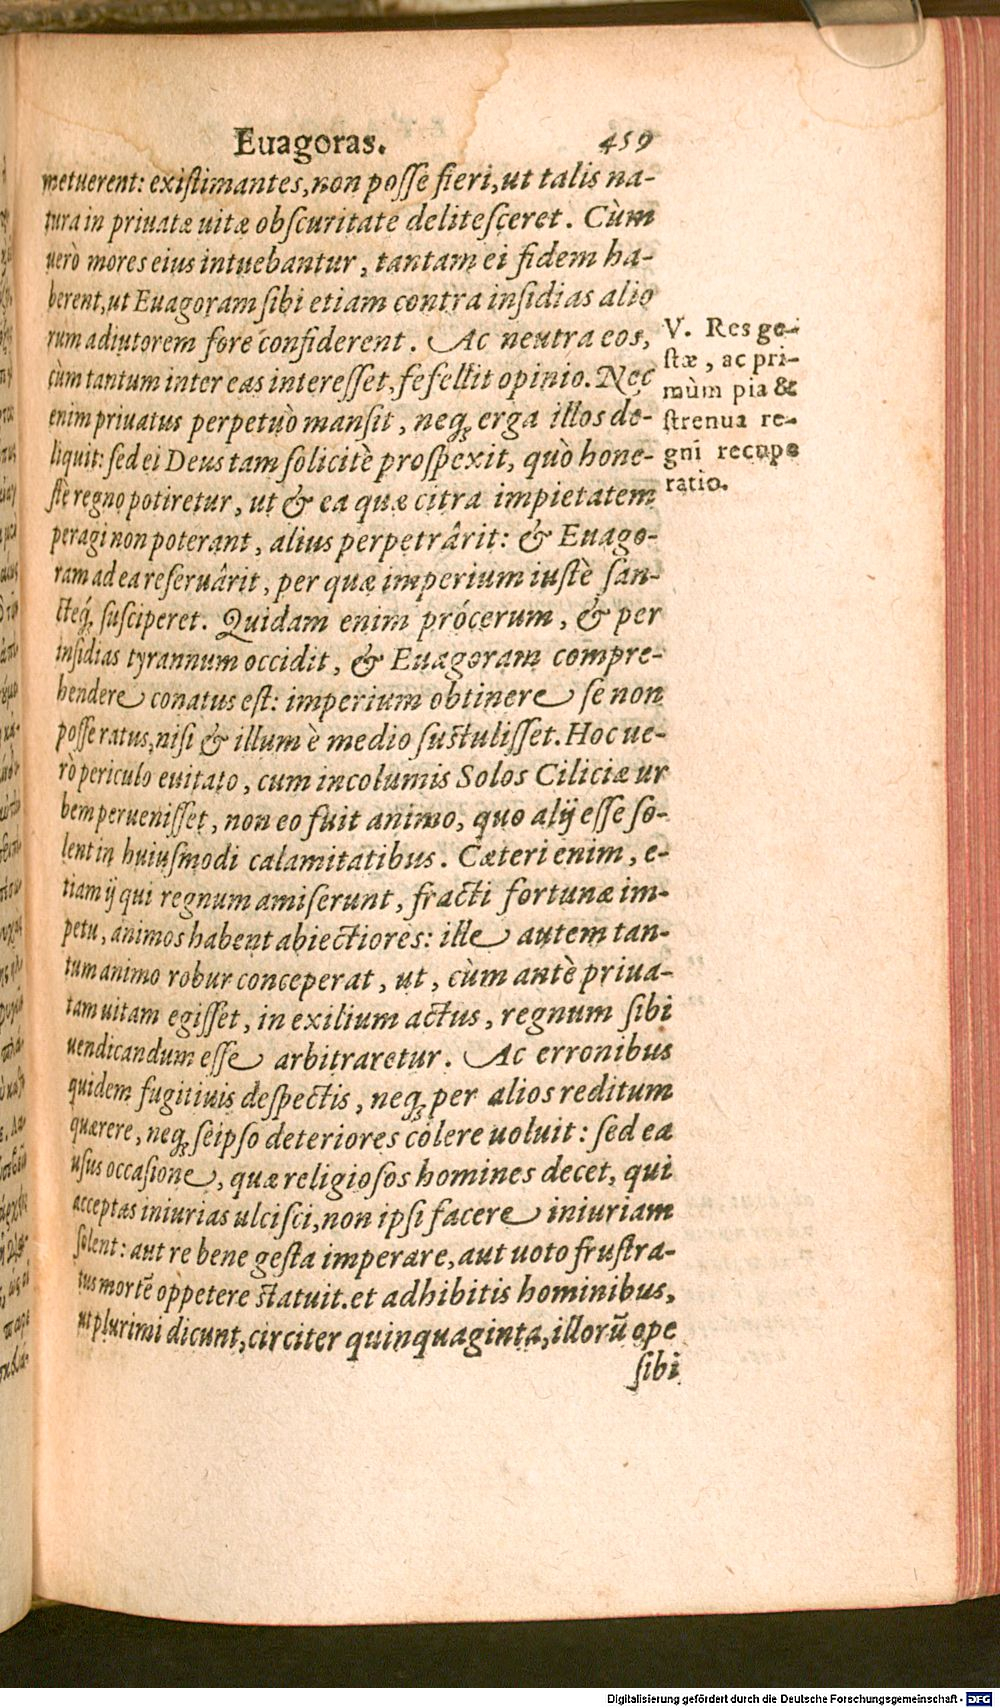 Euagoras. 459
metuerent: existimantes, non posse fieri, ut talis na-
tura in priuatæ uitæ obscuritate delitesceret. Cùm
uerò mores eius intuebantur, tantam ei fidem ha-
berent, ut Euagoram sibi etiam contra insidias alio
rum adiutorem fore confiderent. Ac neutra eos,
cùm tantum inter eas interesset, fefellit opinio. Nec
enim priuatus perpetuò mansit, neq; erga illos de-
liquit: sed ei Deus tam solicitè prospexit, quò hone-
stè regno potiretur, ut & ea quæ citra impietatem
peragi non poterant, alius perpetrârit: & Euago-
ram ad ea reseruârit, per quæ imperium iustè san-
cteq́; susciperet. Quidam enim prócerum, & per
insidias tyrannum occidit, & Euagoram compre-
hendere conatus est: imperium obtinere se non
posse ratus, nisi & illum è medio sustulisset. Hoc ue-
rò periculo euitato, cum incolumis Solos Ciliciæ ur
bem peruenisset, non eo fuit animo, quo alij esse so-
lent in huiusmodi calamitatibus. Cæteri enim, e-
tiam ij qui regnum amiserunt, fracti fortunæ im-
petu, animos habent abiectiores: ille autem tan-
tum animo robur conceperat, ut, cùm antè priua-
tam uitam egisset, in exilium actus, regnum sibi
uendicandum esse arbitraretur. Ac erronibus
quidem fugitiuis despectis, neq; per alios reditum
quærere, neq; seipso deteriores colere uoluit: sed ea
usus occasione, quæ religiosos homines decet, qui
acceptas iniurias ulcisci, non ipsi facere iniuriam
solent: aut re bene gesta imperare, aut uoto frustra-
tus mortē oppetere statuit. et adhibitis hominibus,
ut plurimi dicunt, circiter quinquaginta, illorū ope
sibi
V. Res ge-
stæ, ac pri-
mùm pia &
strenua re-
gni recupe
ratio.
Digitalisierung gefördert durch die Deutsche Forschungsgemeinschaft - DFG